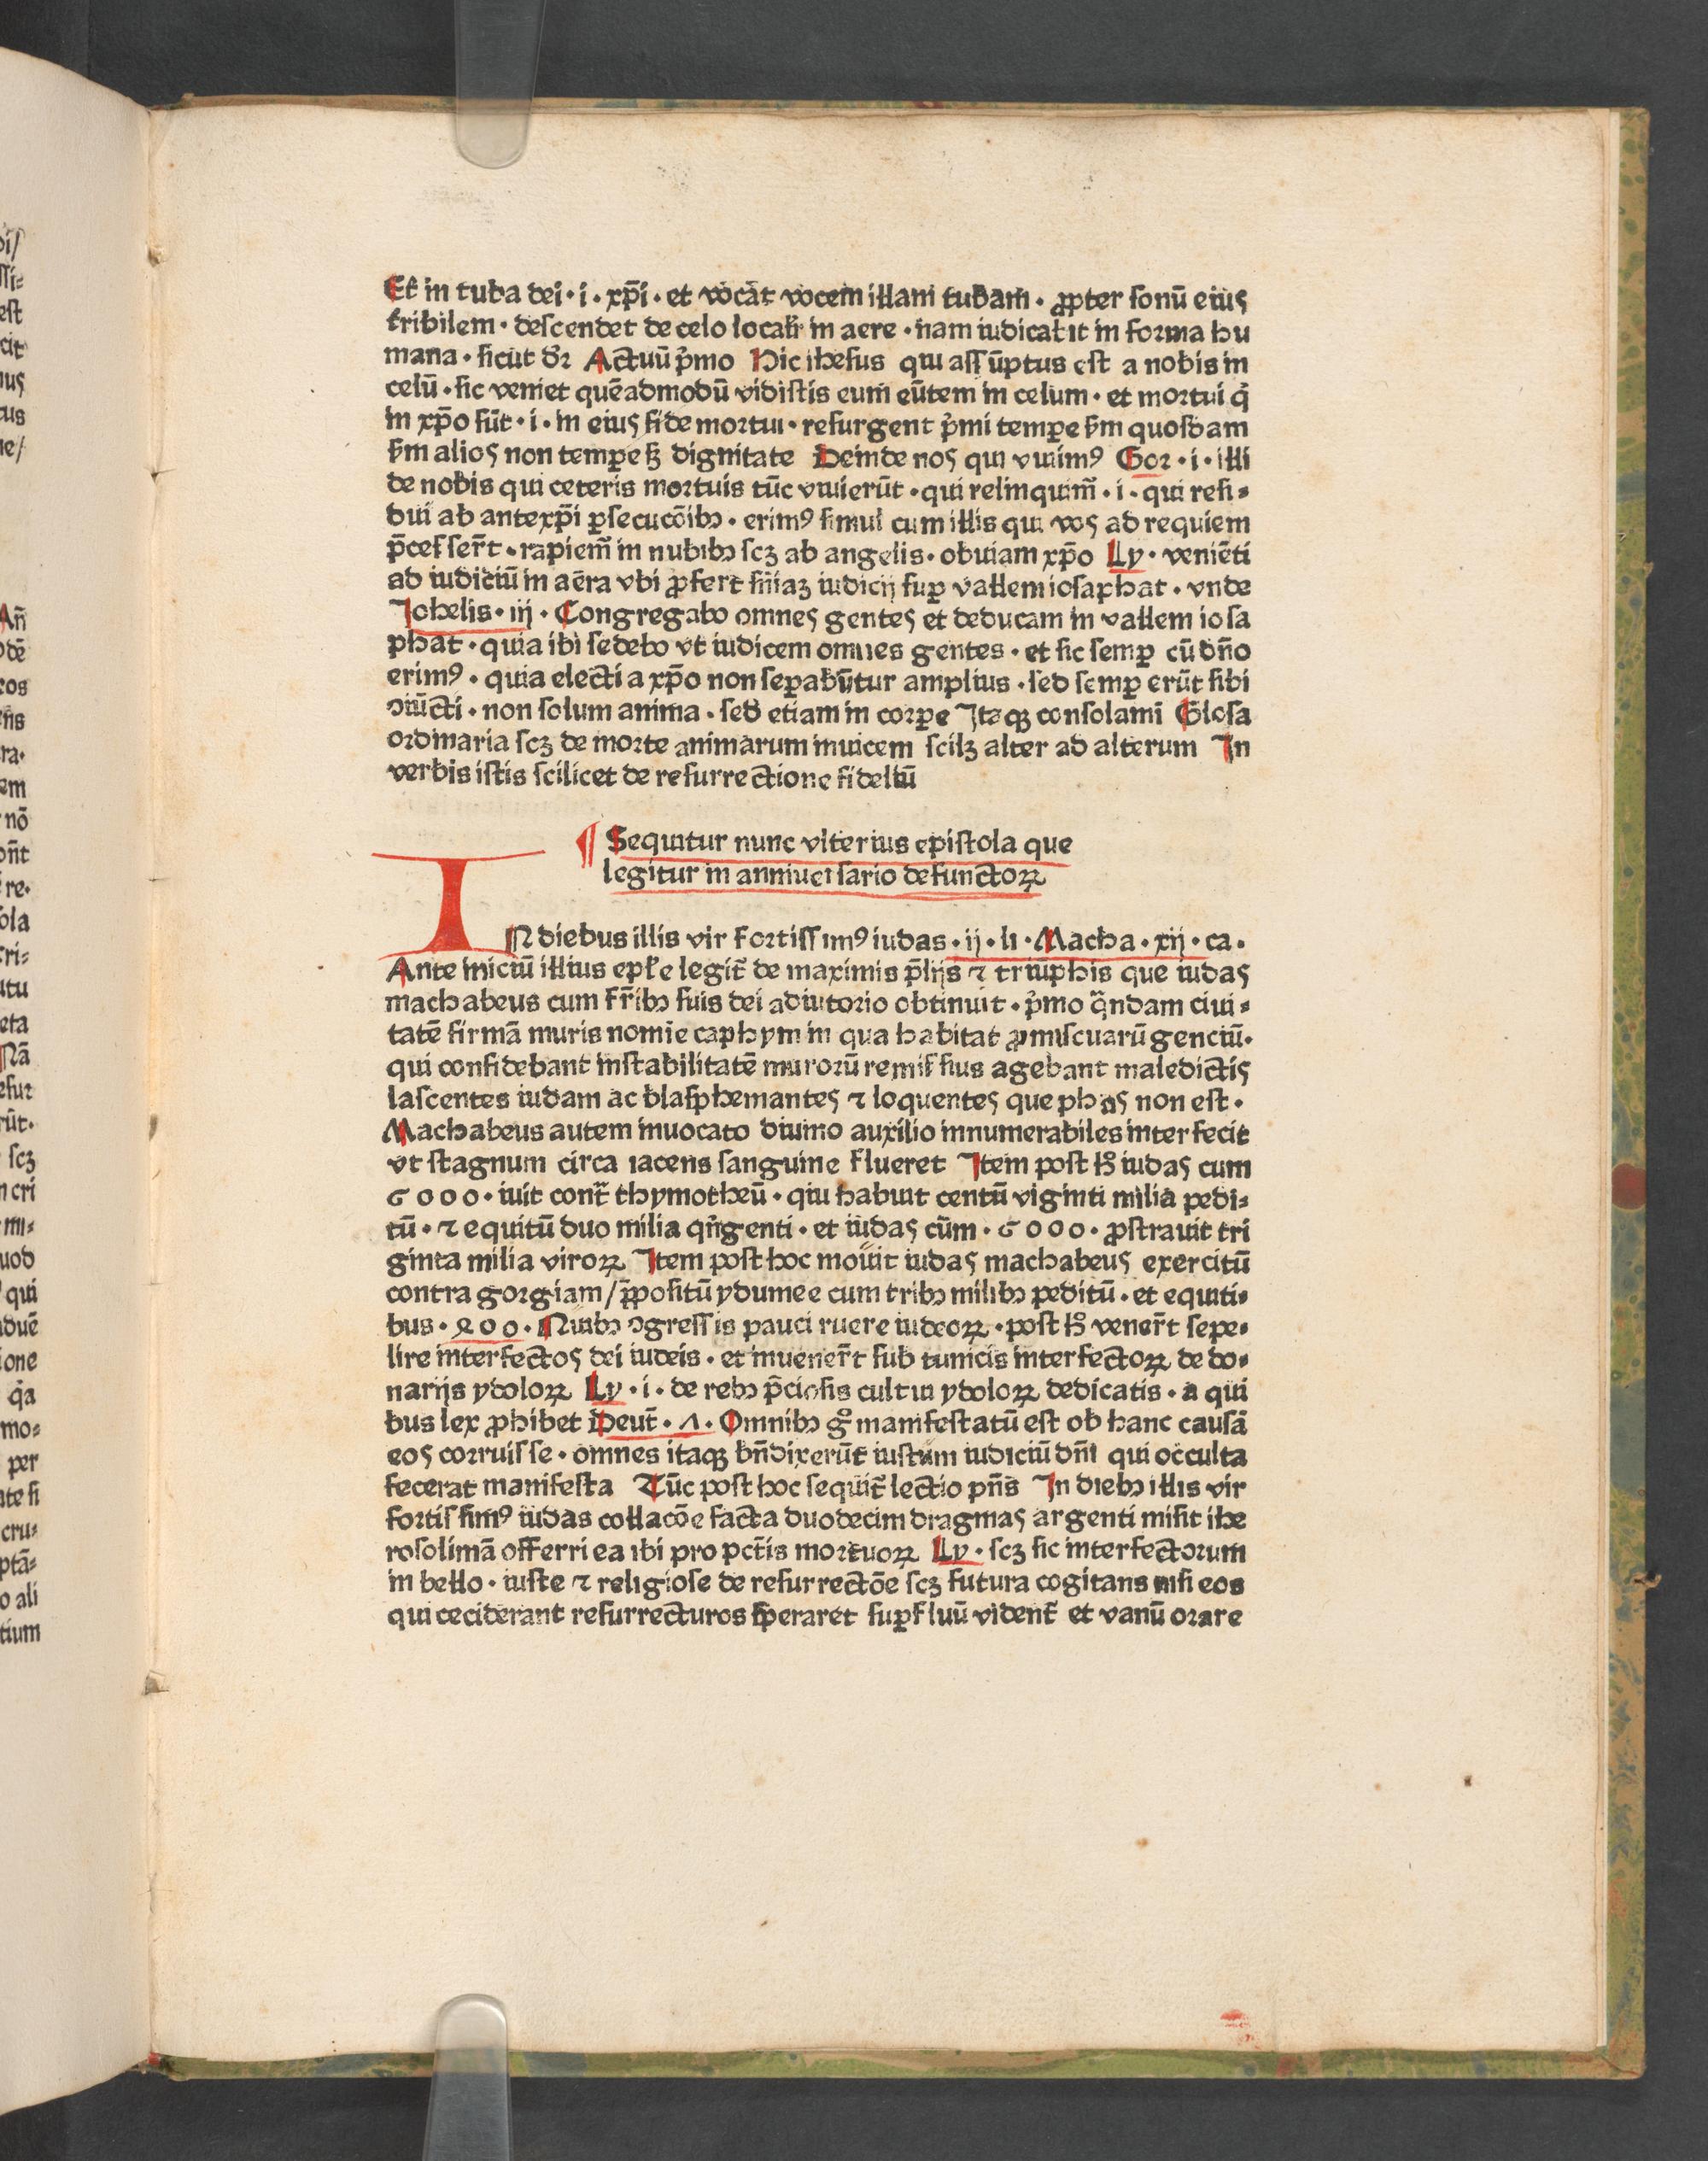 Et in tuba dei · i · xp̄i · et vocāt vocem illam tubam · ꝓpter sonū eius
tribilem · descendet de celo localr̄ in aere · nam iudicabit in forma hu
mana · sicut dr̄ Actuū p̄mo Hic ihesus qui assūptus est a nobis in
celū · sic veniet quēadmodū vidistis eum eūtem in celum · et mortui q̇
in xp̄o sūt · i · in eius fide mortui · resurgent p̄mi tempe ẜm quosdam
ẜm alios non tempe ꝫ dignitate Deinde nos qui viuimꝰ Gor · i · illi
de nobis qui ceteris mortuis tūc viuierūt · qui relinquim̄ · i · qui resi⸗
dui ab antexp̄i ꝑsecucōibꝫ · erimꝰ simul cum illis qui vos ad requiem
p̄cesser̄t · rapiem̄ in nubibꝫ scꝫ ab angelis · obuiam xp̄o Ly · veniēti
ad iudiciū in aēra vbi ꝓfert sn̄iaꝫ iudicij suꝑ vallem iosaphat · vnde
Johelis · iij · Congregabo omnes gentes et deducam in vallem iosa
phat · quia ibi sedebo vt iudicem omnes gentes · et sic semꝑ cū dn̄o
erimꝰ · quia electi a xp̄o non seꝑabūtur amplius · sed semꝑ erūt sibi
ɔiūcti · non solum anima · sed etiam in corꝑe Itaqꝫ consolami Glosa
ordinaria scꝫ de morte animarum inuicem scilꝫ alter ad alterum In
verbis istis scilicet de resurrectione fideliū
¶ Sequitur nunc vlterius epistola que
legitur in anniuersario defunctoꝝ
IN diebus illis vir fortissimꝰ iudas · ij · li · Macha · xij · ca ·
Ante iniciū illius epl̄e legit̄ de maximis p̄lijs ⁊ triūphis que iudas
machabeus cum fr̄ibꝫ suis dei adiutorio obtinuit · p̄mo q̄ndam ciui⸗
tatē firmā muris nomīe caphym in qua habitat ꝓmiscuarū genciū ·
qui confidebant in stabilitatē murorū remissius agebant maledictis
lascentes iudam ac blasphemantes ⁊ loquentes que phas non est ·
Machabeus autem inuocato diuino auxilio innumerabiles interfecit
vt stagnum circa iacens sanguine flueret Item post h̊ iudas cum
6000 · iuit contr̄ thymotheū · qui habuit centū viginti milia pedi⸗
tū · ⁊ equitū duo milia qn̄genti · et iudas cūm · 6000 · ꝓstrauit tri
ginta milia viroꝝ Item post hoc mouit iudas machabeus exercitū
contra gorgiam / p̄positū ydumee cum tribꝫ milibꝫ peditū · et equiti⸗
bus · 400 · Quibꝫ ɔgressis pauci ruere iudeoꝝ · post h̊ vener̄t sepe⸗
lire interfectos dei iudeis · et inuener̄t sub tunicis interfectoꝝ de do⸗
narijs ydoloꝝ Ly · i · de rebꝫ p̄ciosis cultui ydoloꝝ dedicatis · a qui
bus lex ꝓhibet Deut̄ · 7 · Omnibꝫ g̊ manifestatū est ob hanc causā
eos corruisse · omnes itaqꝫ bn̄dixerūt iustum iudiciū dn̄i qui occulta
fecerat manifesta Tūc post hoc sequit̄ lectio pn̄s In diebꝫ illis vir
fortissimꝰ iudas collacōe facta duodecim dragmas argenti misit ihe
rosolimā offerri ea ibi pro pct̄is mortuoꝝ Ly · scꝫ sic interfectorum
in bello · iuste ⁊ religiose de resurrectōe scꝫ futura cogitans nisi eos
qui ceciderant resurrecturos speraret suꝑfluū vident̄ et vanū orare